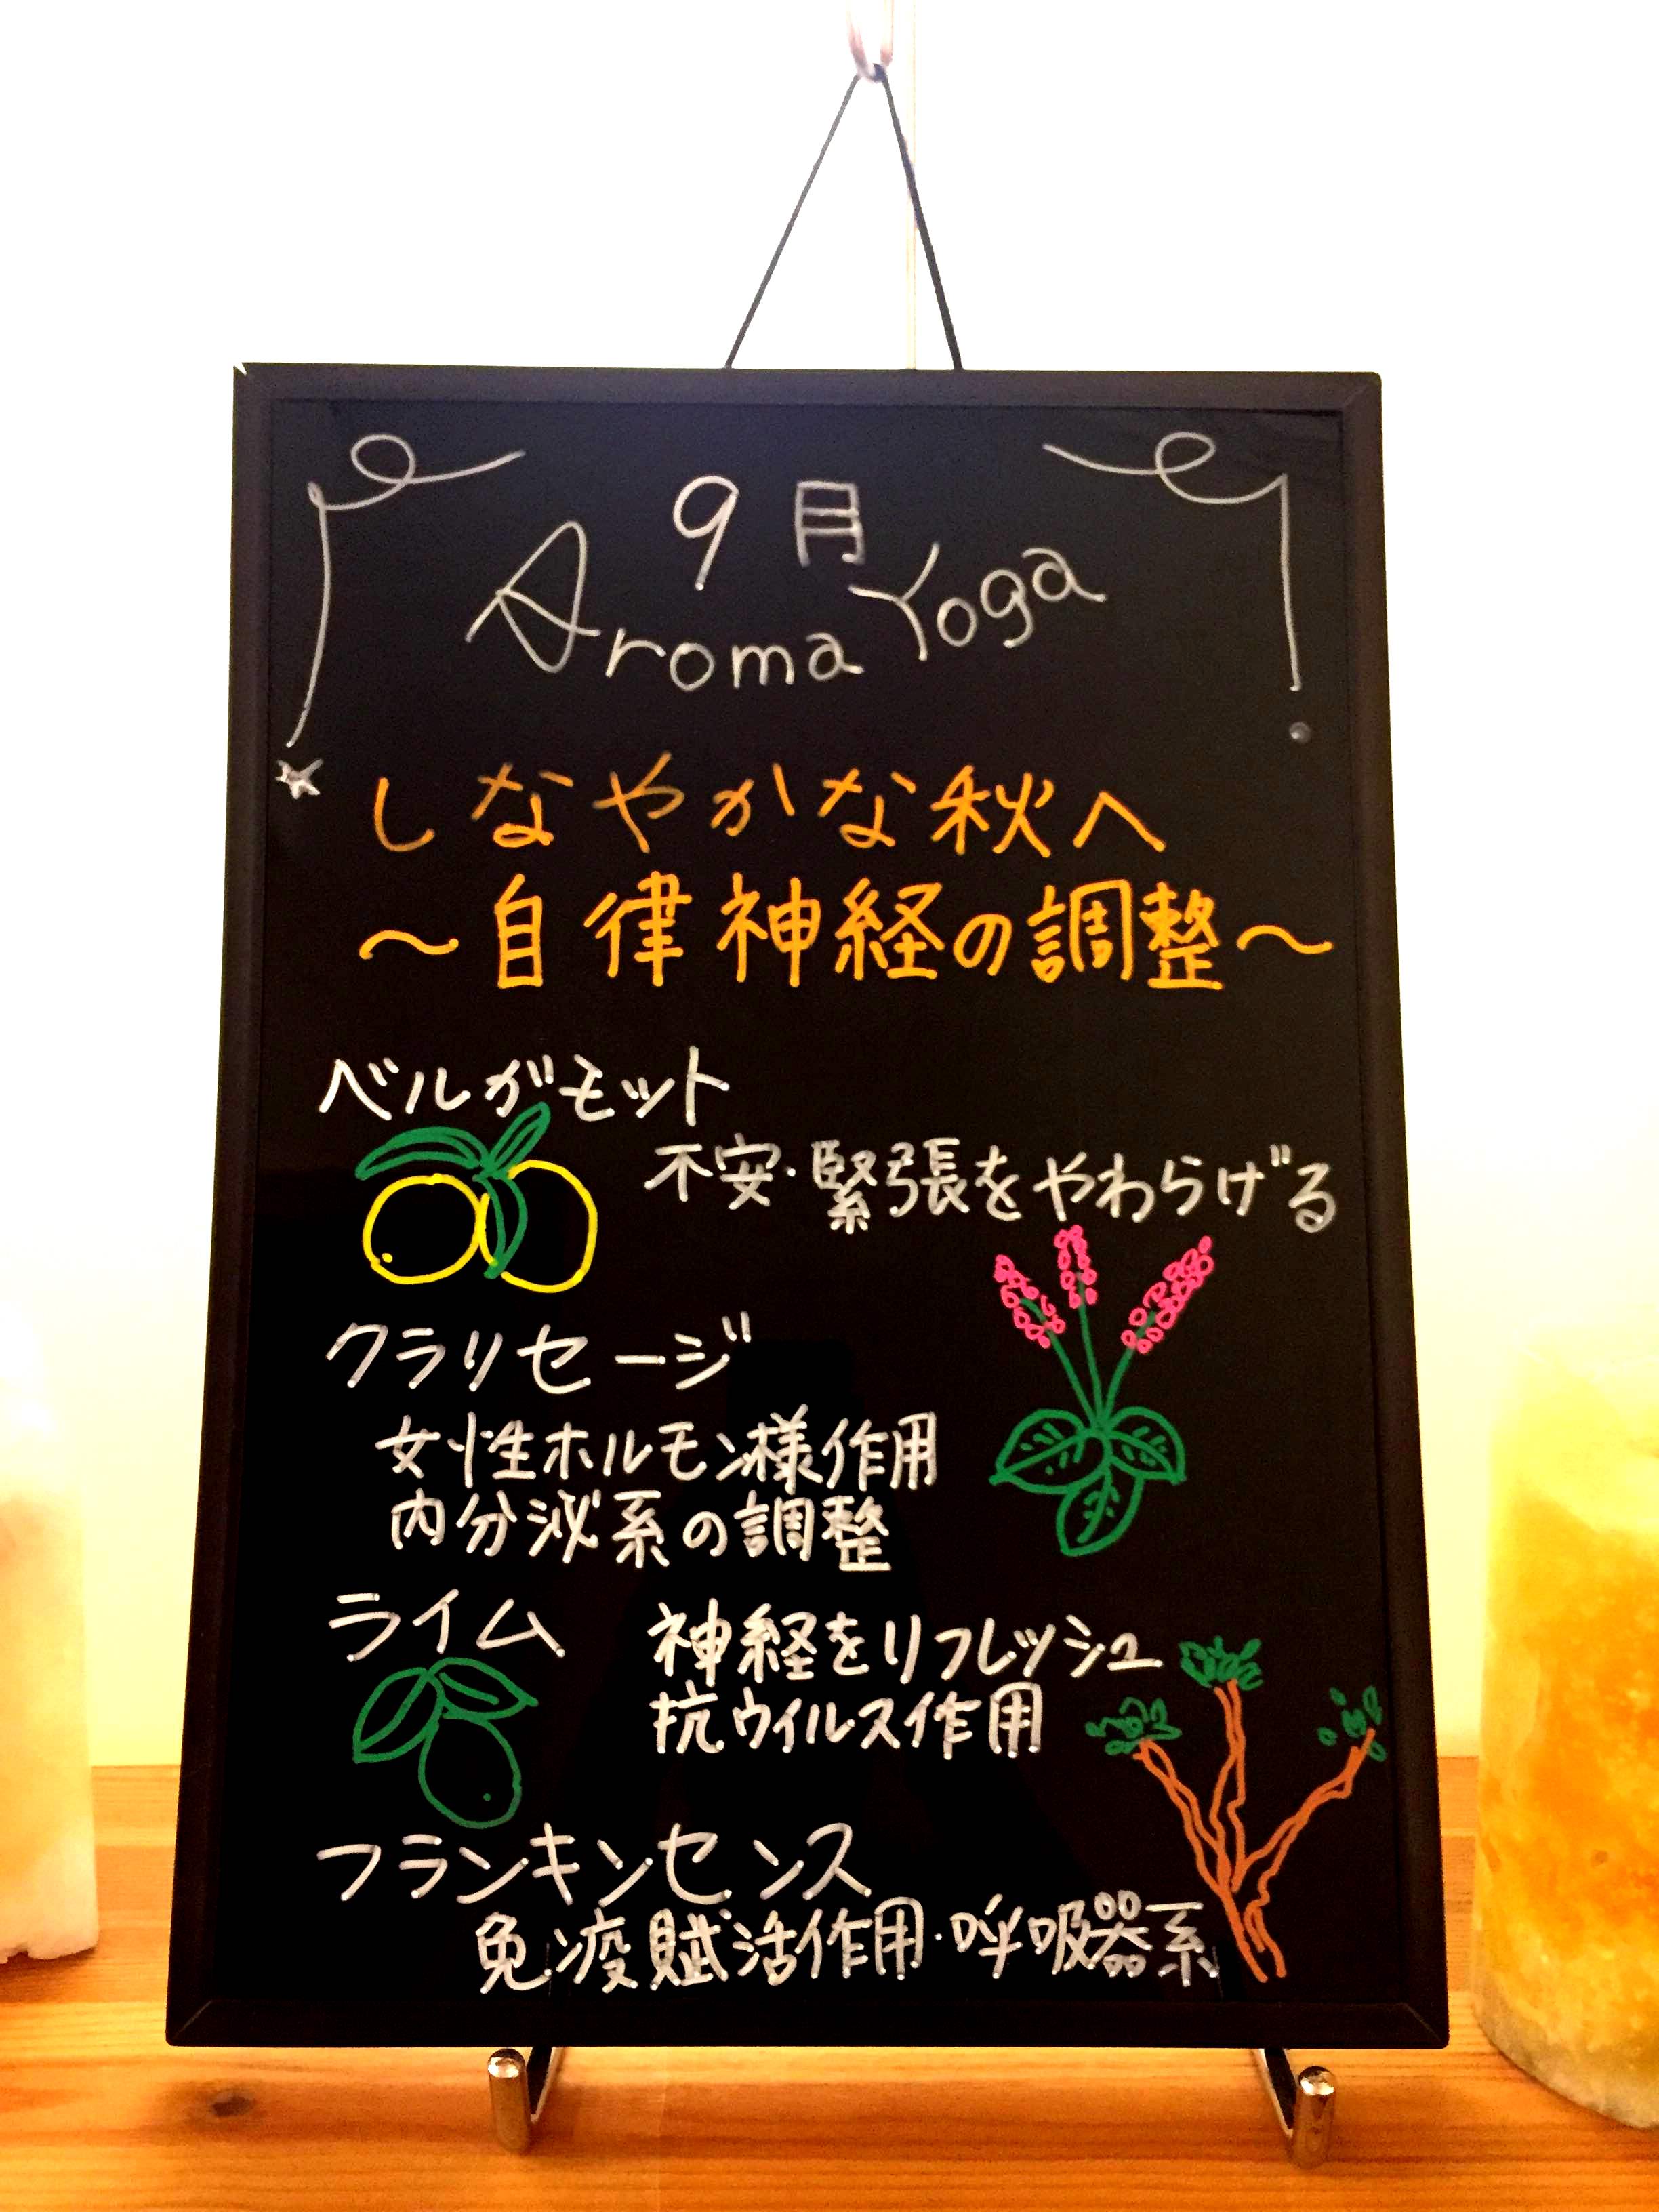 9月
Aroma Yoga
しなやかな秋へ
～自律神経の調整～
ベルガモット
不安・緊張をやわらげる
クラリセージ
女性ホルモン様作用
内分泌系の調整
ライム
神経をリフレッシュ
抗ウイルス作用
フランキンセンス
免疫賦活作用・呼吸器系